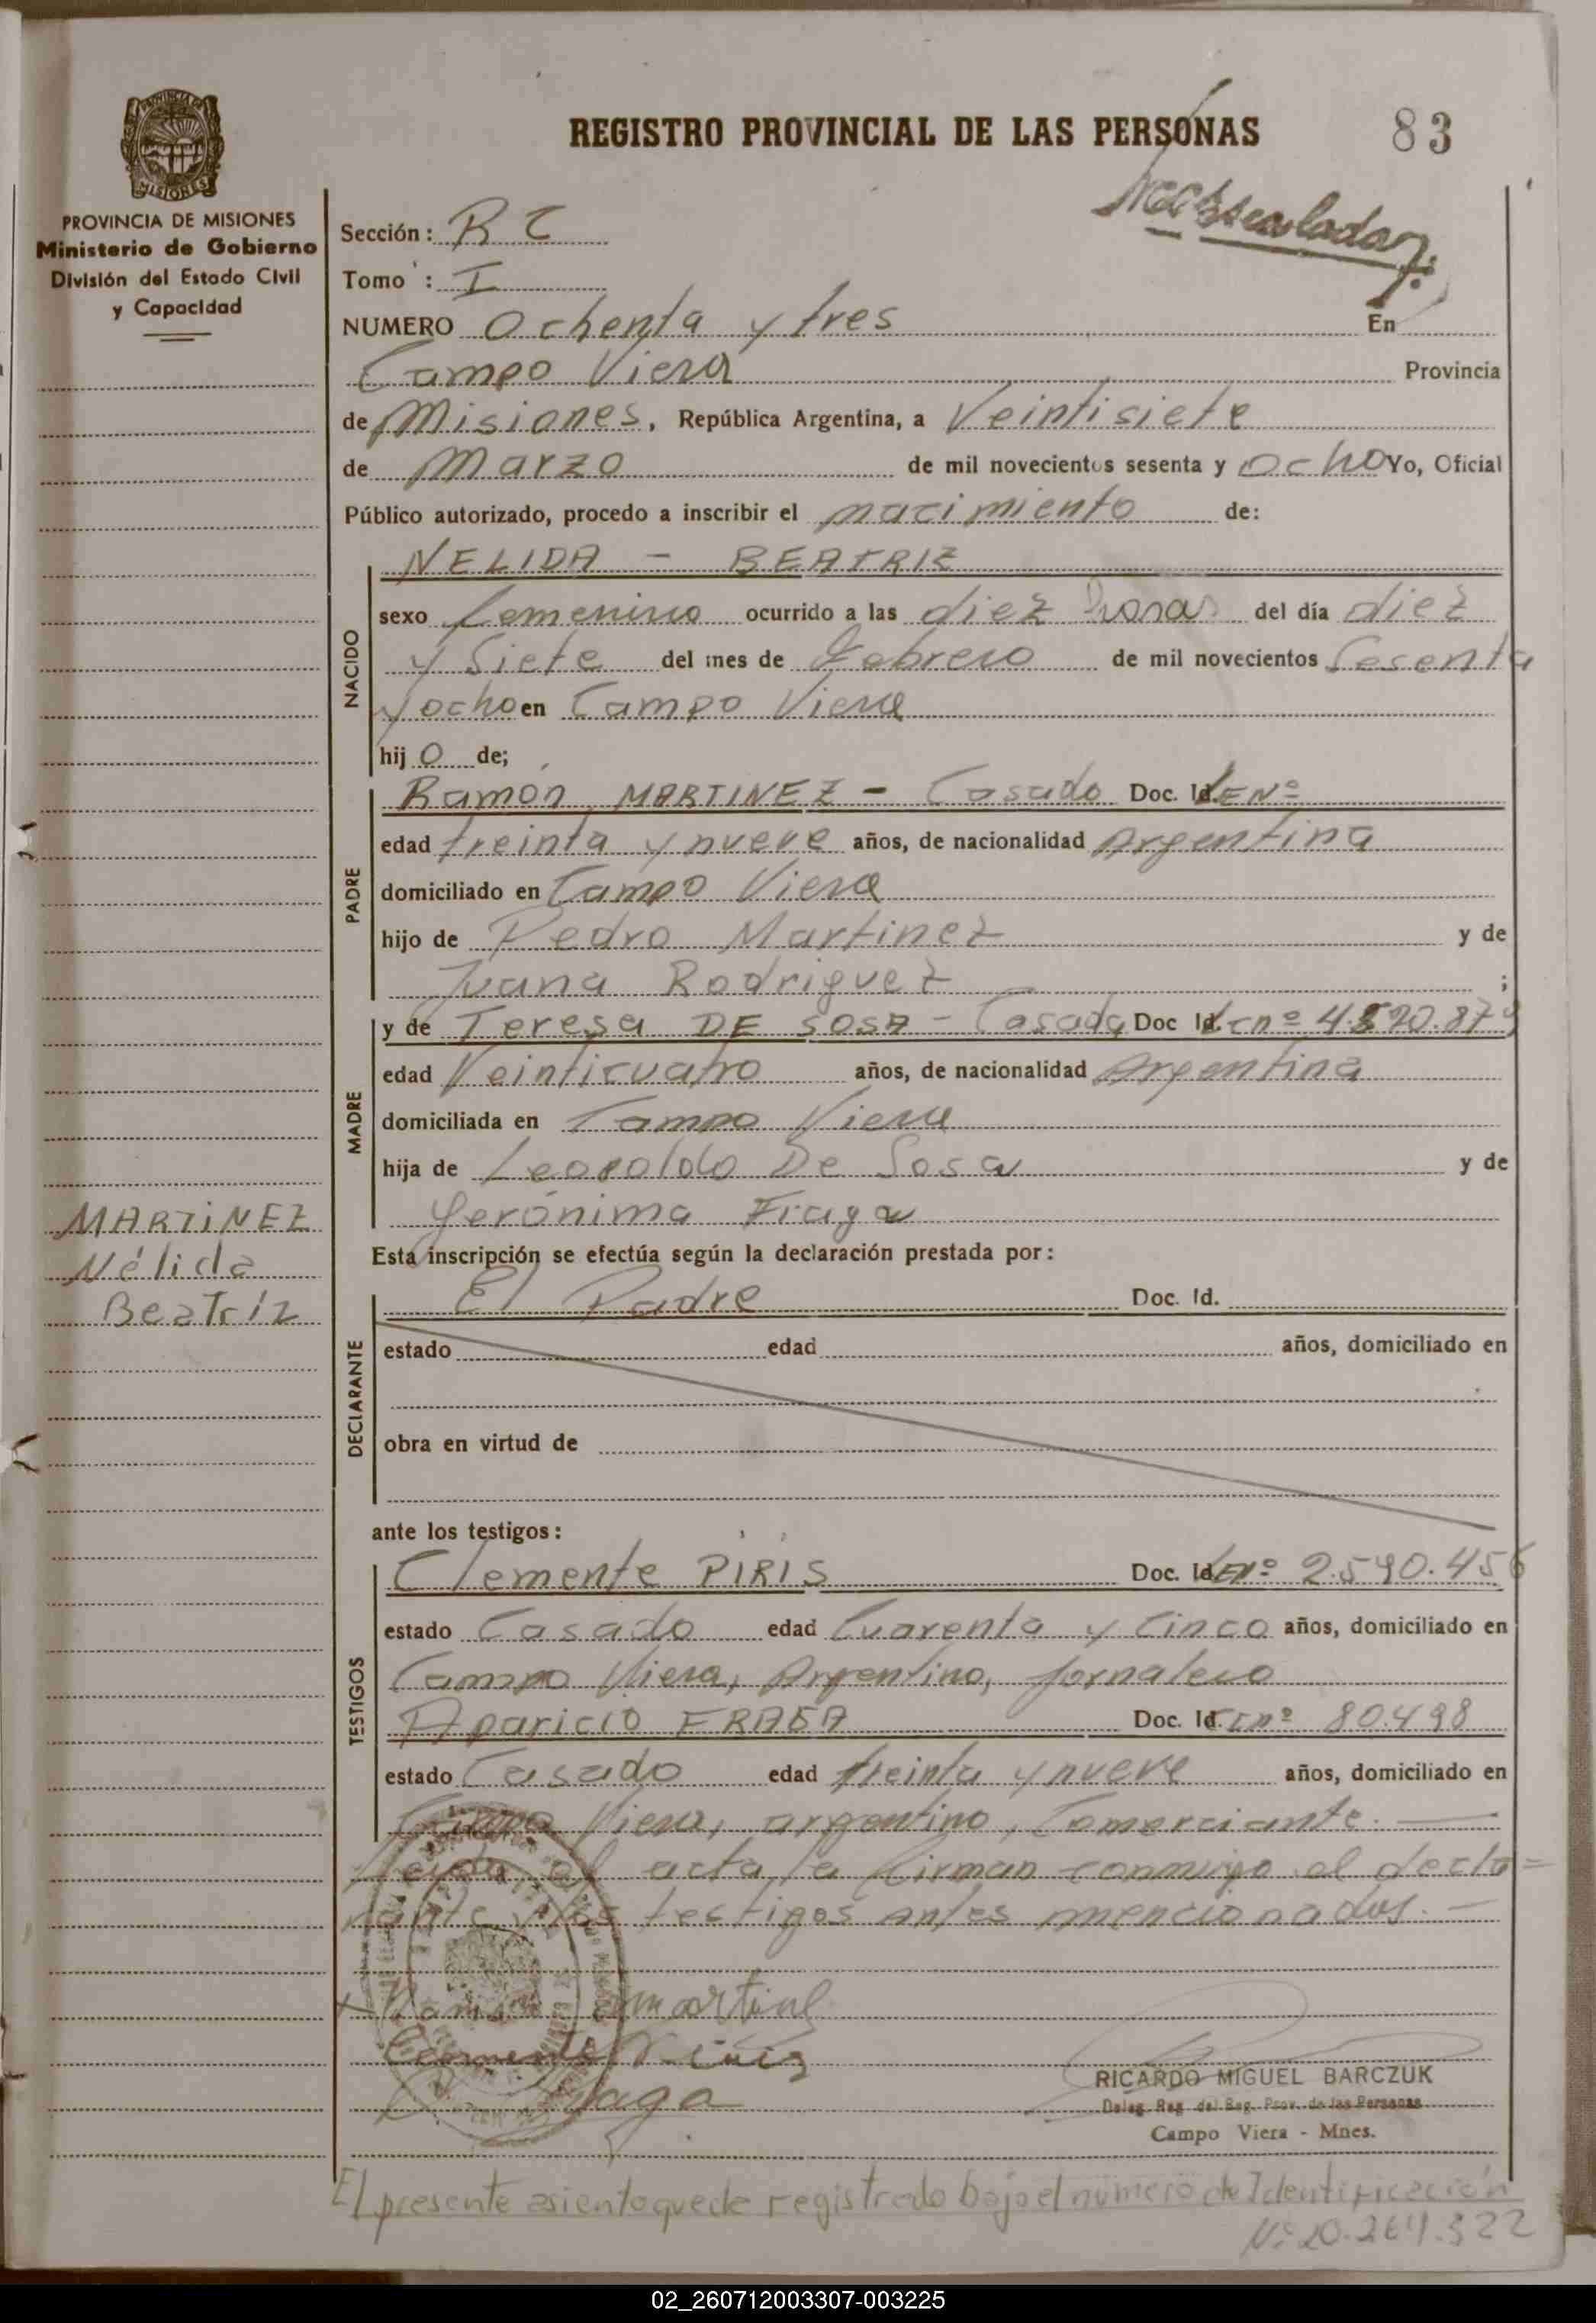 REGISTRO PROVINCIAL DE LAS PERSONAS
83
PROVINCIA DE MISIONES
Ministerio de Gobierno
División del Estado Civil
y Capacidad
Sección: R C
Tomo : I
NUMERO Ochenta y tres En
Campo Viera Provincia
de Misiones, República Argentina, a Veintisiete
de Marzo de mil novecientos sesenta y ocho Yo, Oficial
Público autorizado, procedo a inscribir el nacimiento de:
NACIDO
NELIDA - BEATRIZ
sexo femenino ocurrido a las diez horas del día diez
y Siete del mes de Febrero de mil novecientos Sesenta
y ocho en Campo Viera
hij o de;
PADRE
Ramón MARTINEZ - Casado Doc. Id. LE Nº
edad treinta y nueve años, de nacionalidad Argentina
domiciliado en Campo Viera
hijo de Pedro Martinez y de
Juana Rodriguez ;
MADRE
y de Teresa DE SOSA - Casada Doc Id.
edad Veinticuatro años, de nacionalidad Argentina
domiciliada en Campo Viera
hija de Leopoldo De Sosa y de
Gerónima Fraga
MARTiNEZ
Nélida
Beatríz
Esta inscripción se efectúa según la declaración prestada por:
DECLARANTE
El Padre Doc. Id.
estado edad años, domiciliado en
obra en virtud de
ante los testigos:
TESTIGOS
Clemente PIRIS Doc. Id. LE Nº 2.590.456
estado Casado edad Cuarenta y Cinco años, domiciliado en
Campo Viera, Argentino, Jornalero
Aparicio FRAGA Doc. Id. nº 80.498
estado Casado edad treinta y nueve años, domiciliado en
Campo Viera, argentino, Comerciante.
Leida el acta, la firman conmigo el decla=
rante y los testigos antes mencionados. -
Ramon martinez
RICARDO MIGUEL BARCZUK
Deleg. Reg. del Reg. Prov. de las Personas
Campo Viera - Mnes.
El presente asiento queda registrado bajo el número de Identificación
Nº 20.264.322
02_260712003307-003225